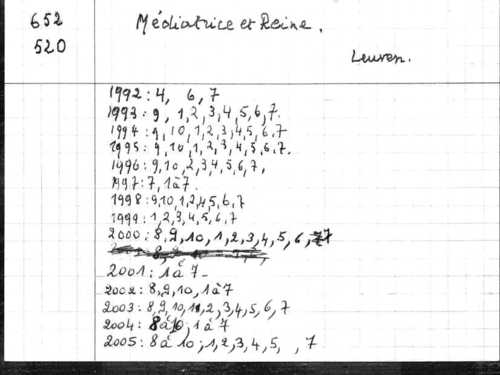 652
520
Médiatrice et Reine.
Leuven.
1992: 4, 6, 7
1993: 9, 1, 2, 3, 4, 5, 6, 7.
1994: 9, 10, 1, 2, 3, 4, 5, 6, 7
1995: 9, 10, 1, 2, 3, 4, 5, 6, 7.
1996: 9, 10, 2, 3, 4, 5, 6, 7,
1997: 7, 1 à 7.
1998: 9, 10, 1, 2, 4, 5, 6, 7
1999: 1, 2, 3, 4, 5, 6, 7
2000: 8, 9, 10, 1, 2, 3, 4, 5, 6, 7
2001: 1 à 7-
2002: 8, 9, 10, 1 à 7
2003: 8, 9, 10, 1, 2, 3, 4, 5, 6, 7
2004: 8 à 10, 1 à 7
2005: 8 à 10, 1, 2, 3, 4, 5, , 7